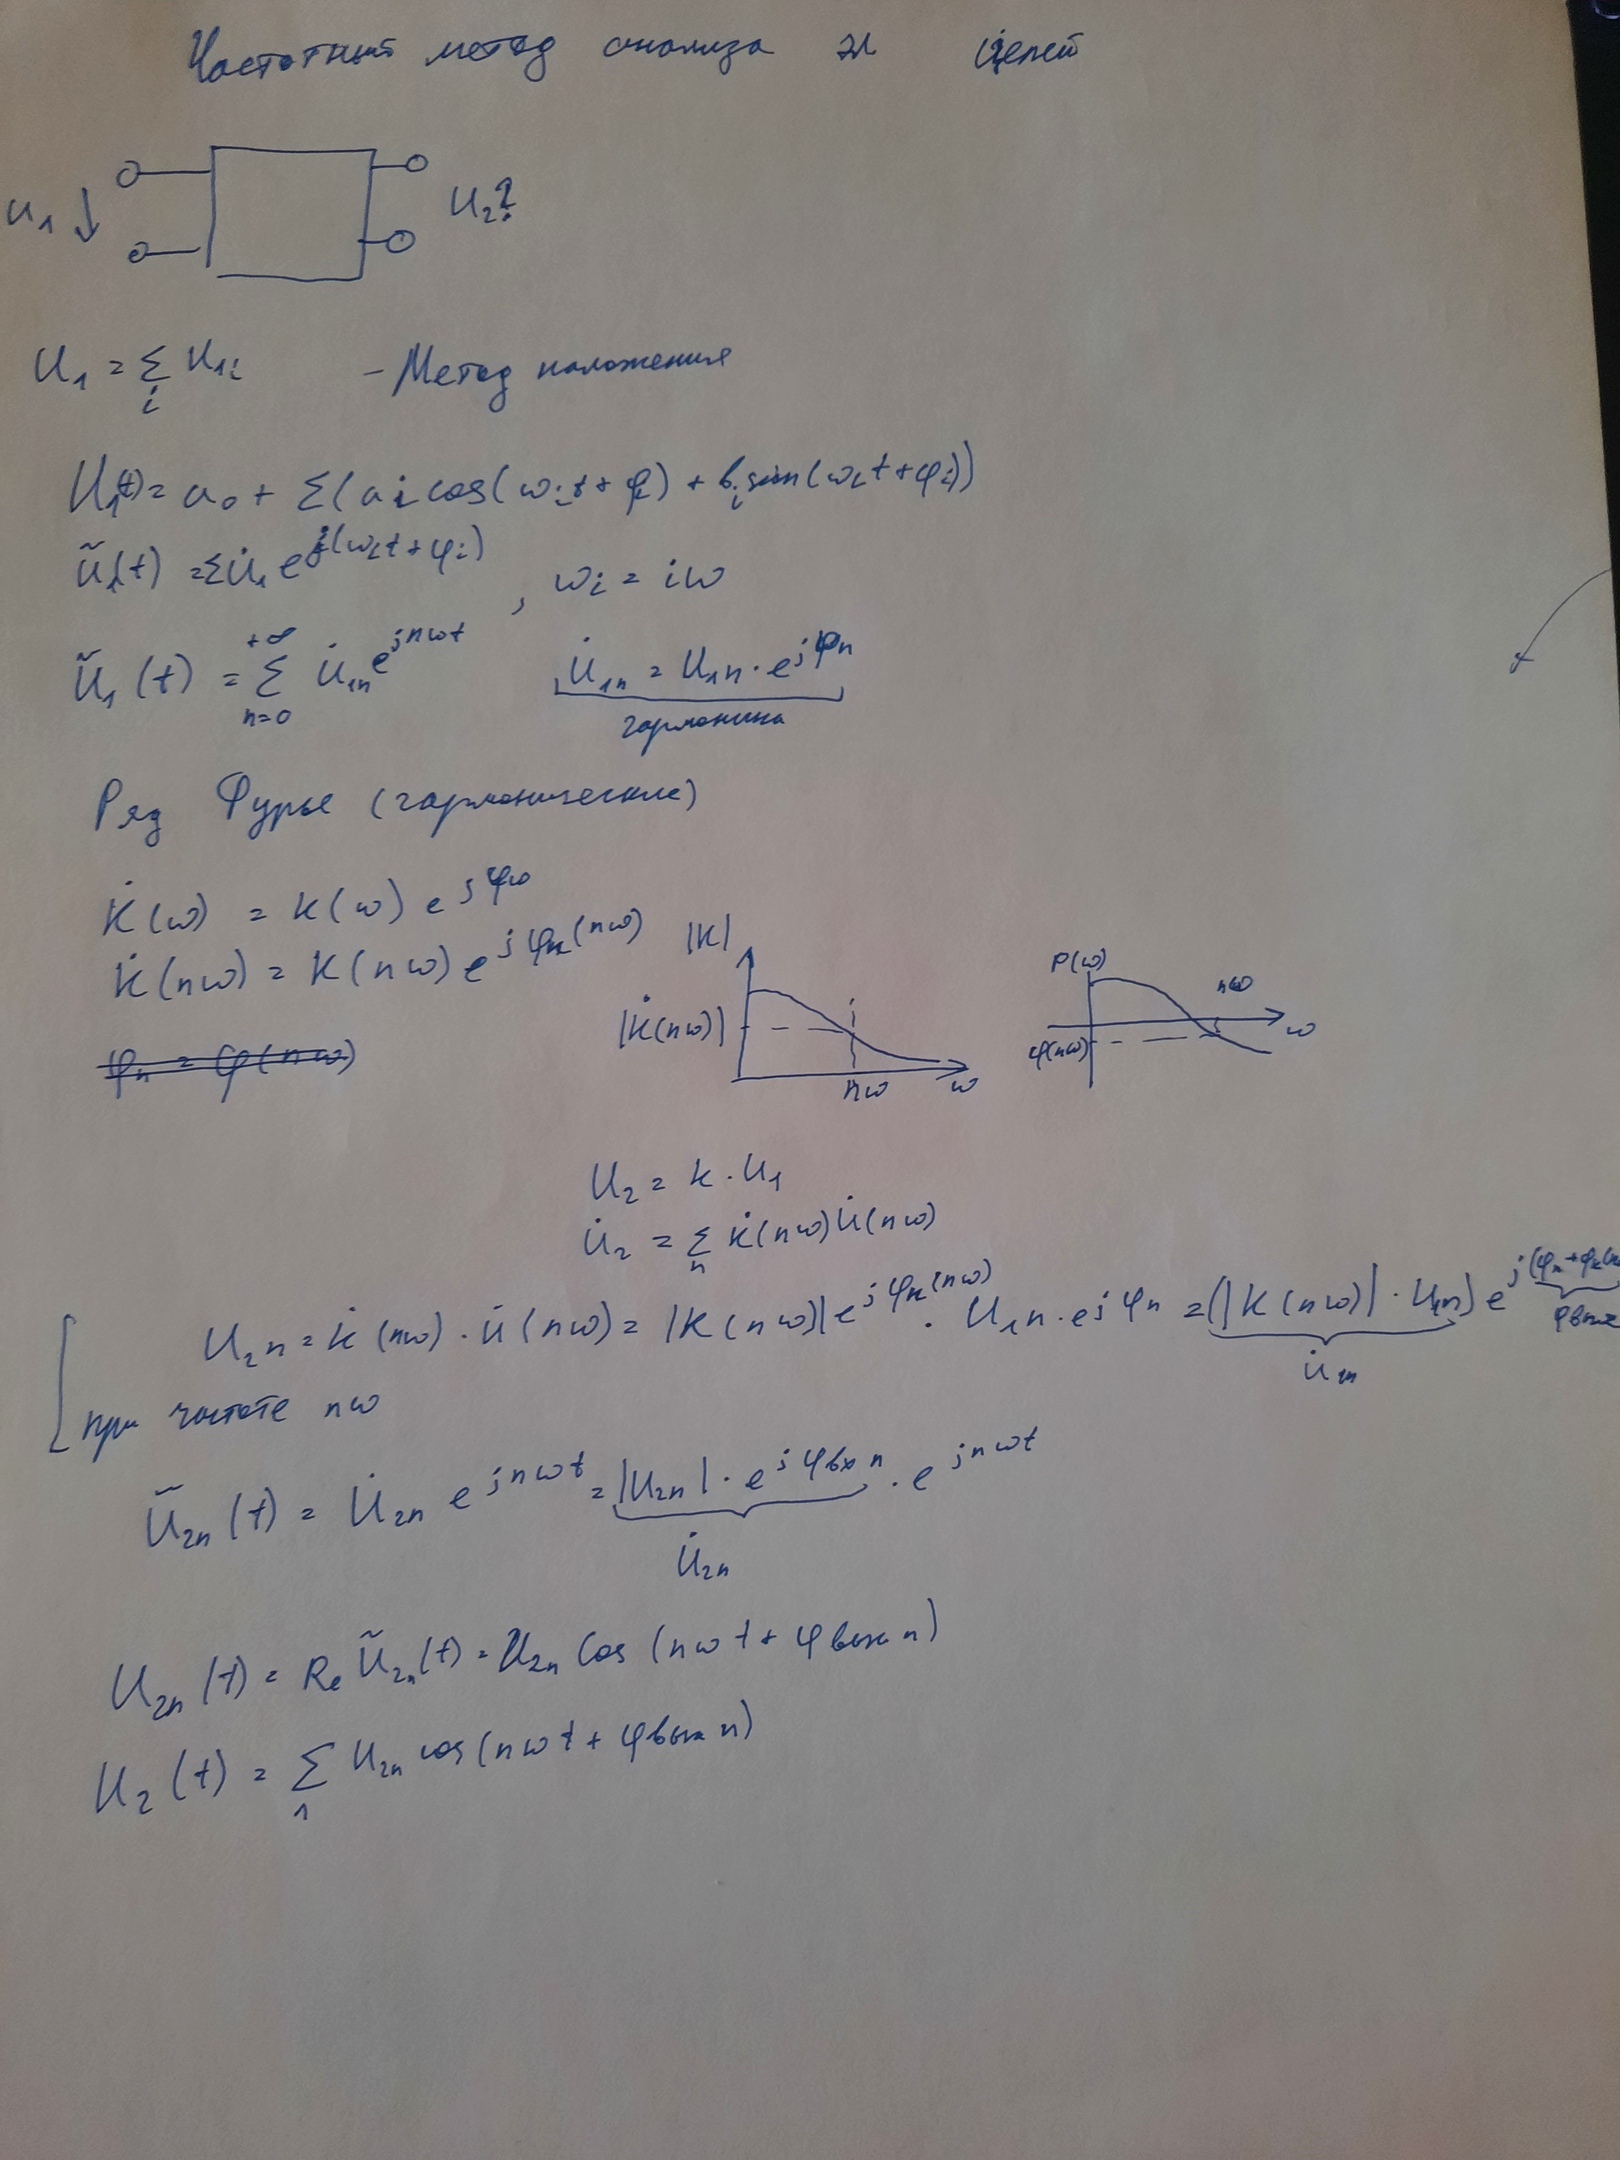 Частотный метод анализа эл цепей
U₁ ↓
U₂?
U₁ = Σᵢ U₁ᵢ - Метод наложения
U₁(t) = a₀ + Σ(aᵢ cos(ωᵢt + φᵢ) + bᵢ sin(ωᵢt + φᵢ))
Ũ₁(t) = ΣU̇₁ e^{j(ωᵢt + φᵢ)} , ωᵢ = iω
Ũ₁(t) = Σ_{n=0}^{+∞} U̇₁ₙ e^{jnωt}
U̇₁ₙ = U₁ₙ · e^{jφₙ}
гармоника
Ряд Фурье (гармонические)
K̇(ω) = K(ω) e^{jφω}
K̇(nω) = K(nω) e^{jφₖ(nω)}
φₙ = φ(nω)
|K|
|K̇(nω)|
nω
ω
φ(ω)
nω
φ(nω)
ω
U₂ = k · U₁
U̇₂ = Σₙ K̇(nω) U̇(nω)
U₂ₙ = K̇(nω) · U̇(nω) = |K(nω)| e^{jφₖ(nω)} · U₁ₙ · e^{jφₙ} = (|K(nω)| · U₁ₙ) e^{j(φₙ + φₖ(n
U̇₂ₙ
φвых
при частоте nω
Ũ₂ₙ(t) = U̇₂ₙ e^{jnωt} = |U₂ₙ| · e^{jφвх n} · e^{jnωt}
U̇₂ₙ
U₂ₙ(t) = Re Ũ₂ₙ(t) = U₂ₙ Cos(nωt + φвых n)
U₂(t) = Σ₁ U₂ₙ cos(nωt + φвых n)